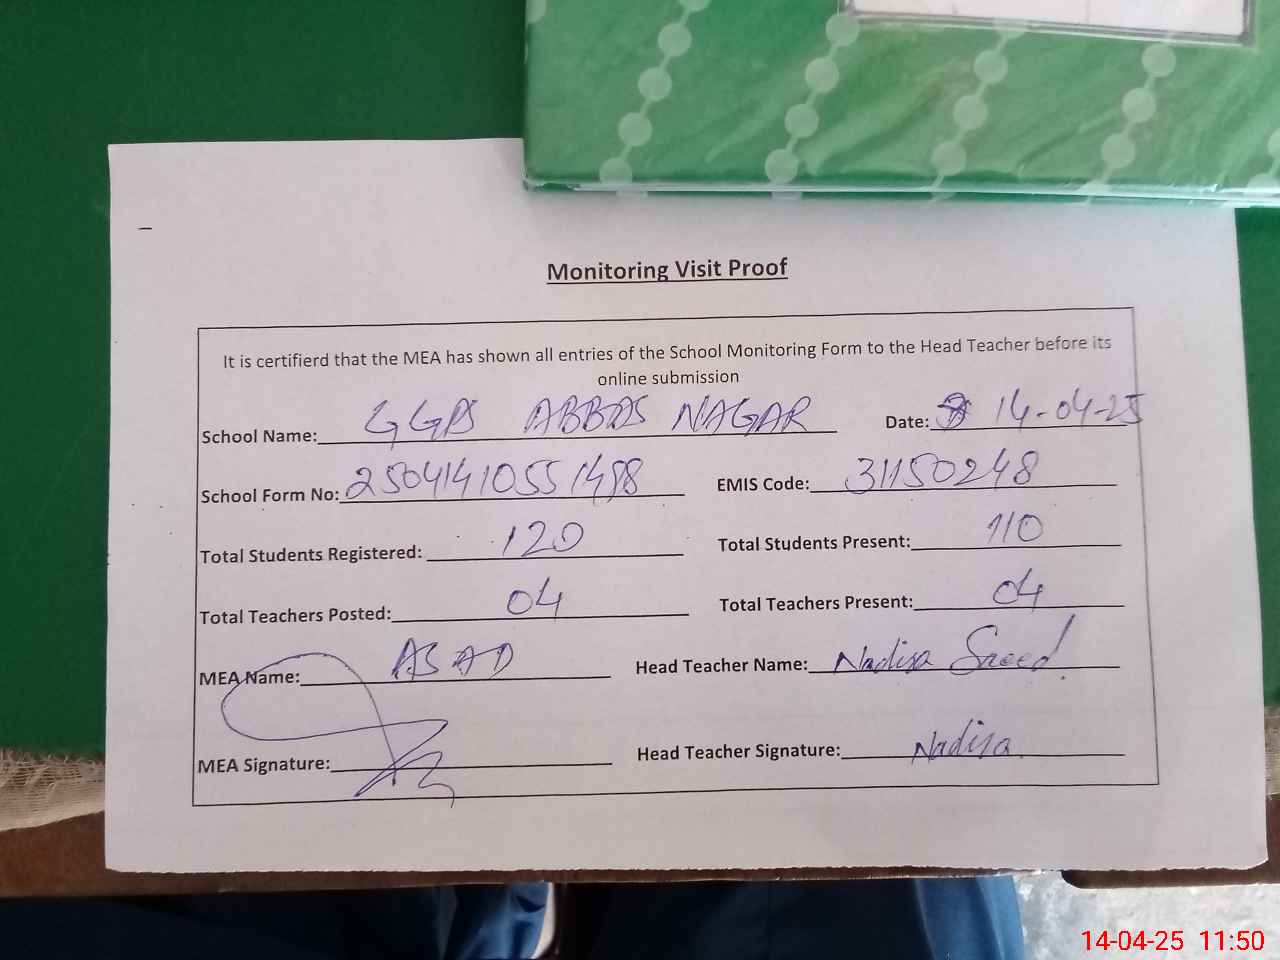 Monitoring Visit Proof
It is certifierd that the MEA has shown all entries of the School Monitoring Form to the Head Teacher before its
online submission
School Name: GGPS ABBAS NAGAR Date: 14-04-25
School Form No: 25041410551488 EMIS Code: 31150248
Total Students Registered: 120 Total Students Present: 110
Total Teachers Posted: 04 Total Teachers Present: 04
MEA Name: ASAD Head Teacher Name: Nadisa Saeed
MEA Signature: Head Teacher Signature: Nadisa
14-04-25 11:50